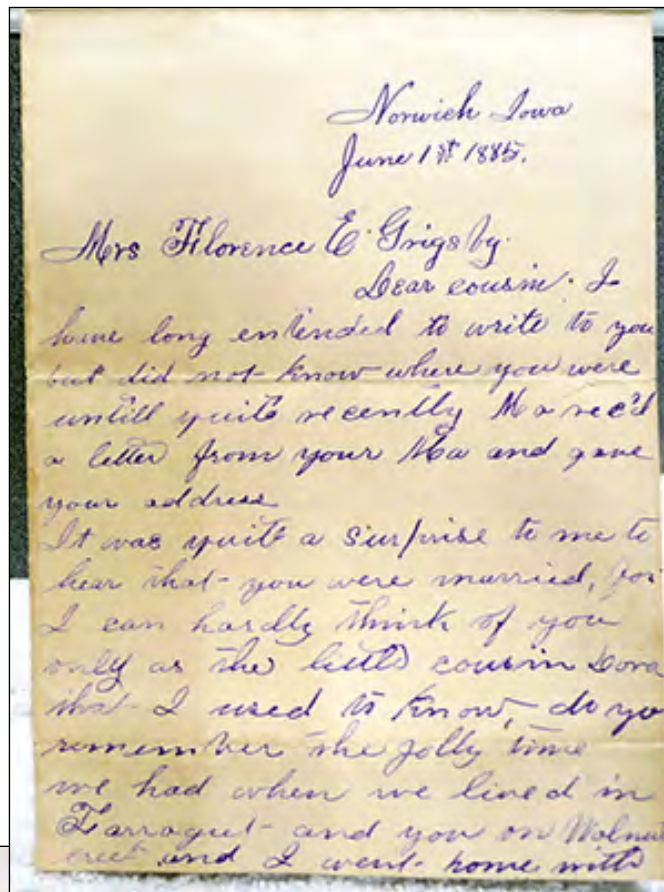 Norwich Iowa
June 1st 1885.
Mrs Florence E. Grigsby.
Dear cousin. I
have long entended to write to you
but did not know where you were
untill quite recently Ma rec'd
a letter from your Ma and gave
your address
It was quite a surprise to me to
hear that you were married, for
I can hardly think of you
only as the little cousin Dora
that I used to know, do yo
remember the jolly time
we had when we lived in
Farragut and you on Walnut
creek and I went home with